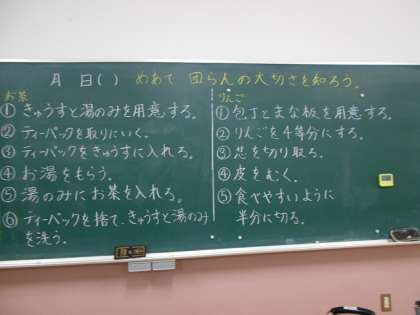 月 日( ) めあて 団らんの大切さを知ろう。
お茶
①きゅうすと湯のみを用意する。
②ティーバックを取りにいく。
③ティーバックをきゅうすに入れる。
④お湯をもらう。
⑤湯のみにお茶を入れる。
⑥ティーバックを捨て、きゅうすと湯のみ
を洗う。
りんご
①包丁とまな板を用意する。
②りんごを4等分にする。
③芯を切り取る。
④皮をむく。
⑤食べやすいように
半分に切る。